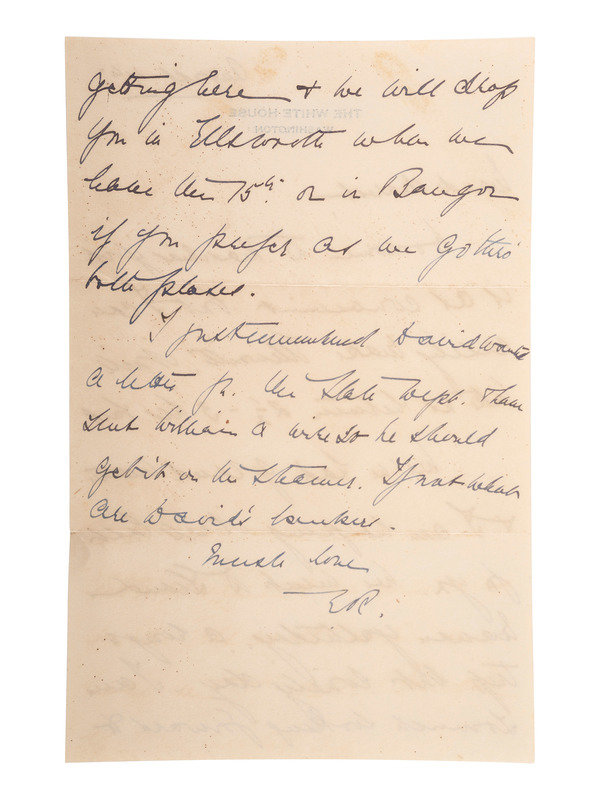 getting here & we will drop
you in Ellsworth when we
leave the 15th. or in Bangor
if you prefer as we go thro'
both places.
I just remembered David wanted
a letter fr. the State Dept. I have
sent William a wire so he should
get it on the steamer. If not what
are David's bankers.
Much love
E.R.
THE WHITE HOUSE
WASHINGTON